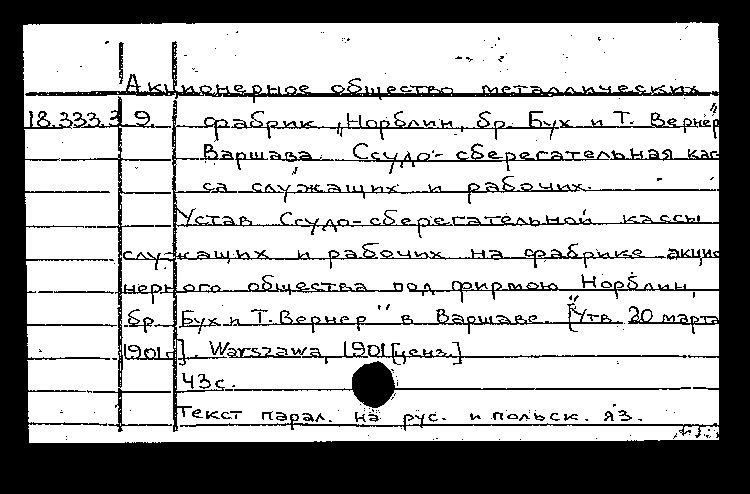 Акционерное общество металлических
18.333.3 9. фабрик „Норблин, бр. Бух и Т. Вернер"
Варшава. Ссудо-сберегательная кас-
са служащих и рабочих.
Устав Ссудо-сберегательной кассы
служащих и рабочих на фабрике акцио
нерного общества под фирмою Норблин,
бр. Бух и Т. Вернер" в Варшаве. [Утв. 20 марта
1901 г]. Warszawa, 1901 [ценз.]
43 с.
Текст парал. на рус. и польск. яз.